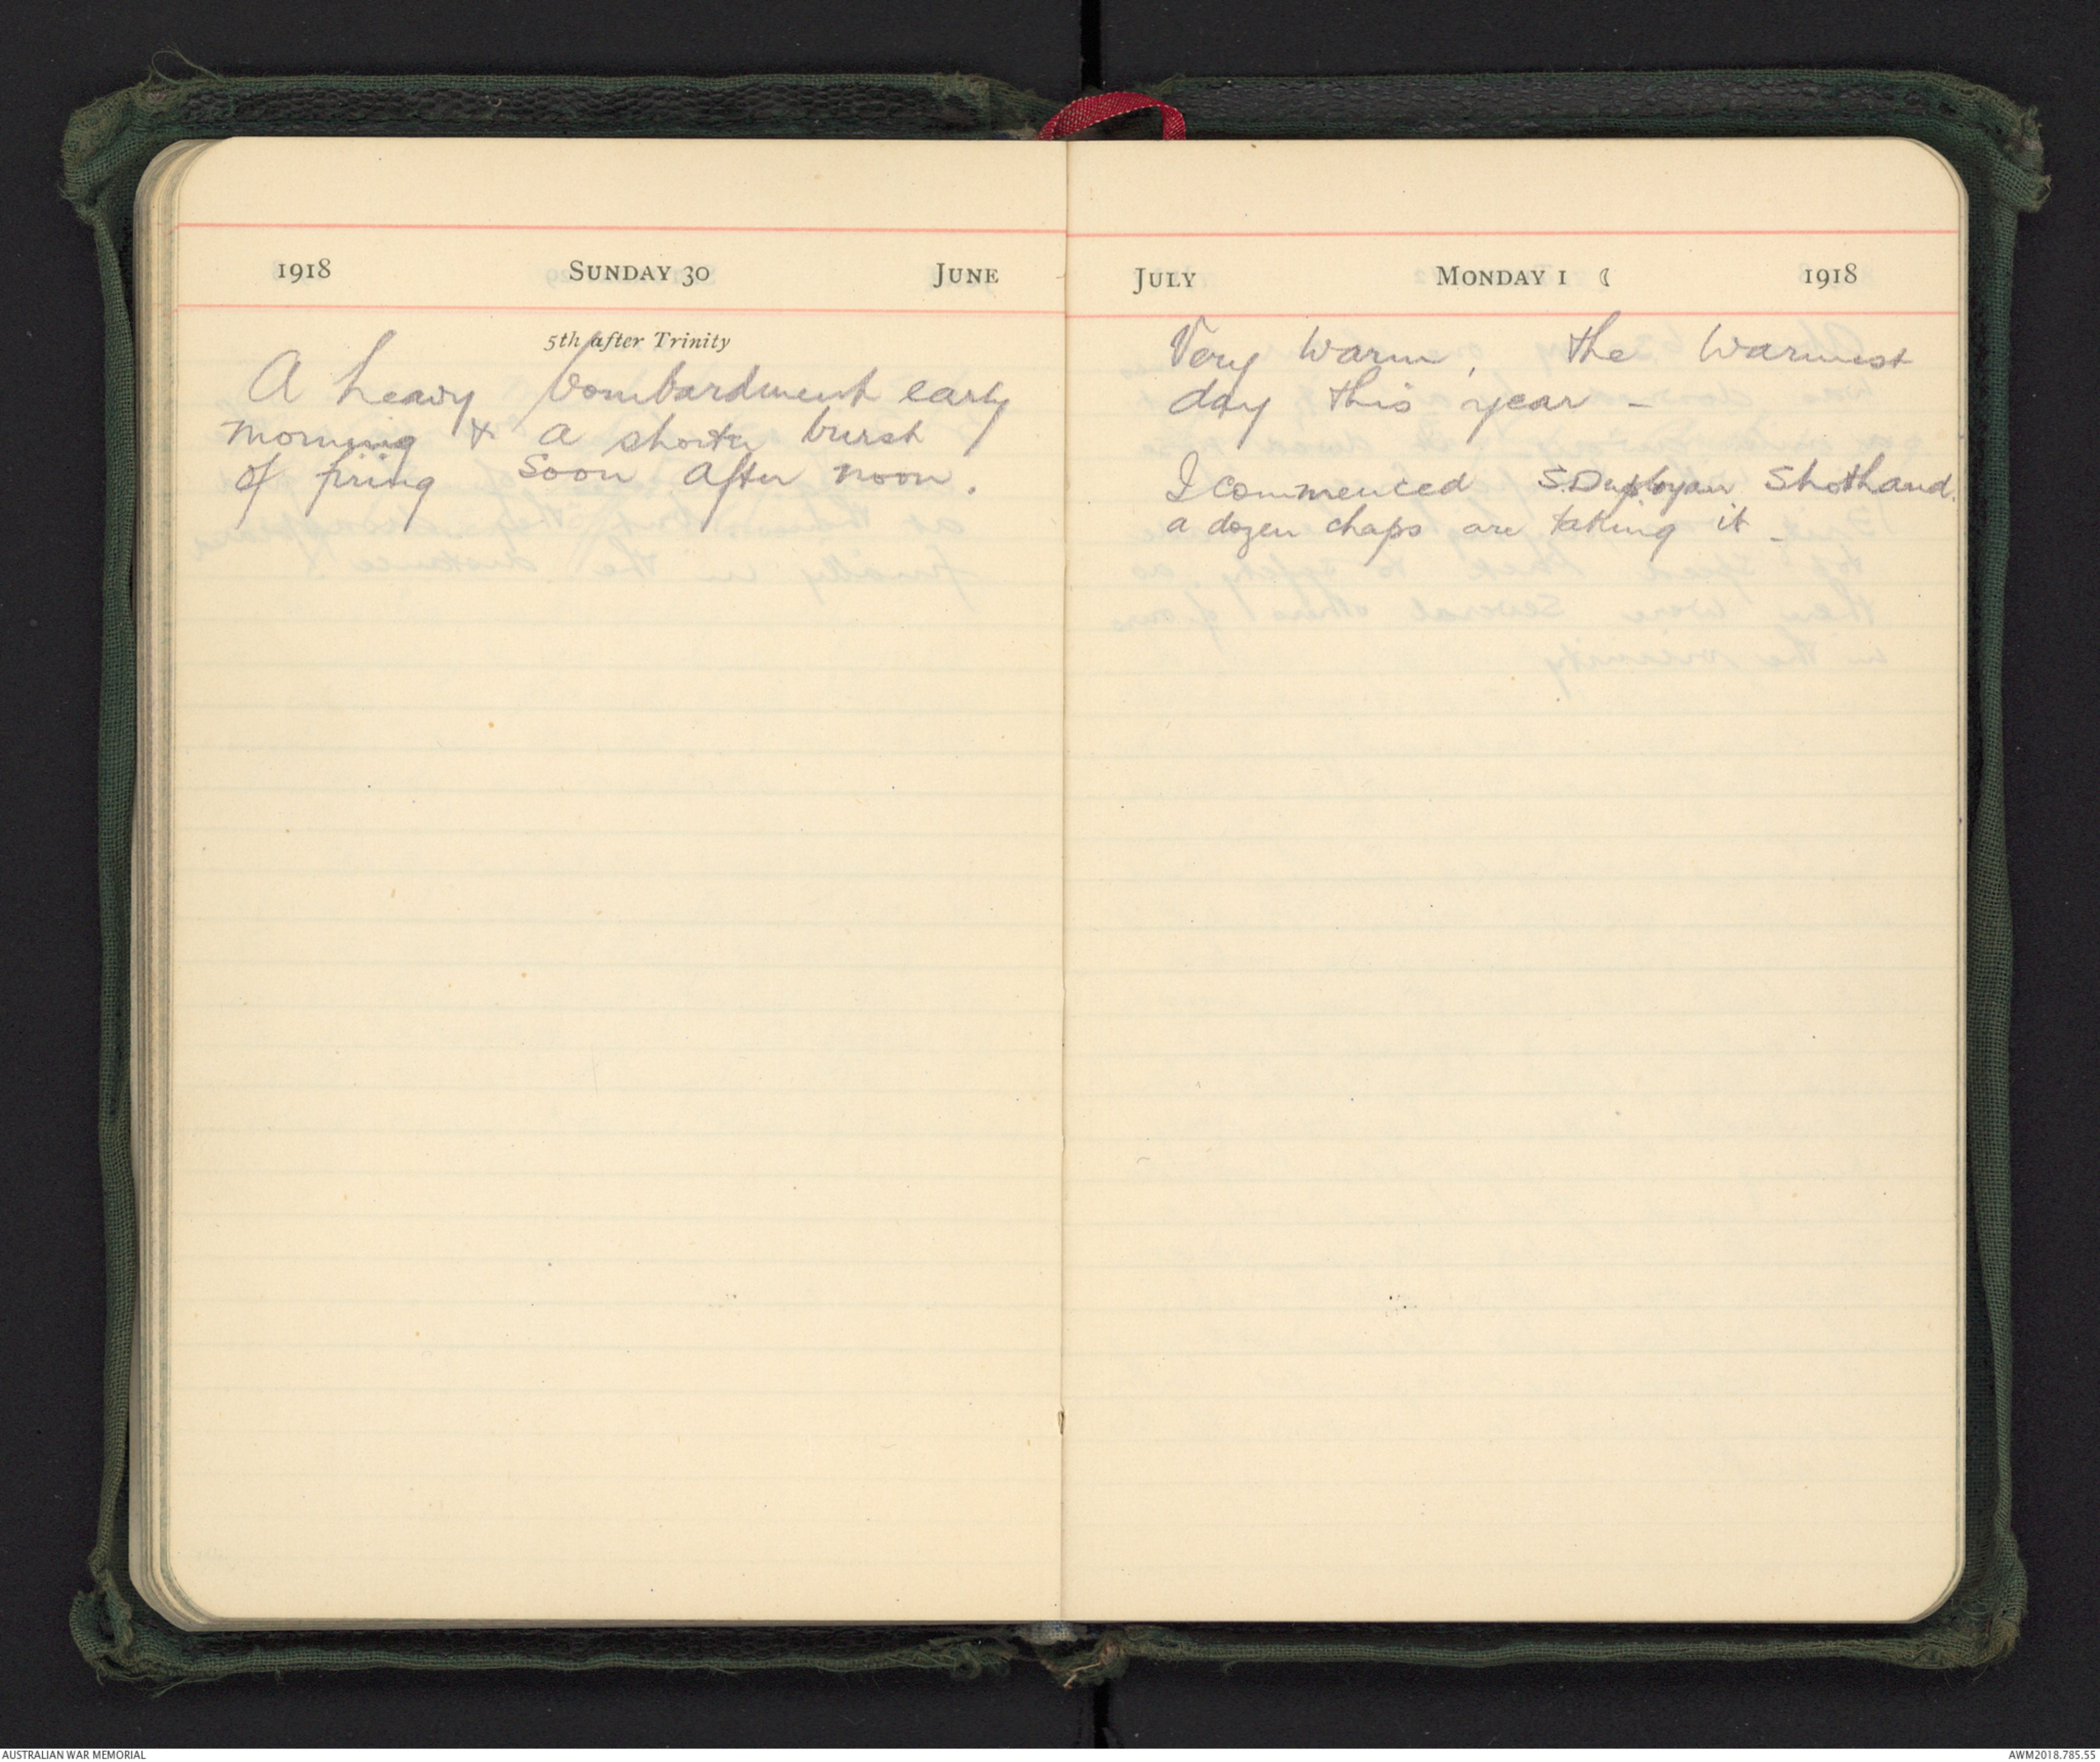 1918 SUNDAY 30 JUNE
5th after Trinity
A heavy bombardment early
morning & a shorter burst
of firing soon after noon.
JULY MONDAY 1 ☾ 1918
Very warm, the warmest
day this year -
I commenced S.Duployan Shothand.
a dozen chaps are taking it -
AUSTRALIAN WAR MEMORIAL
AWM2018.785.55